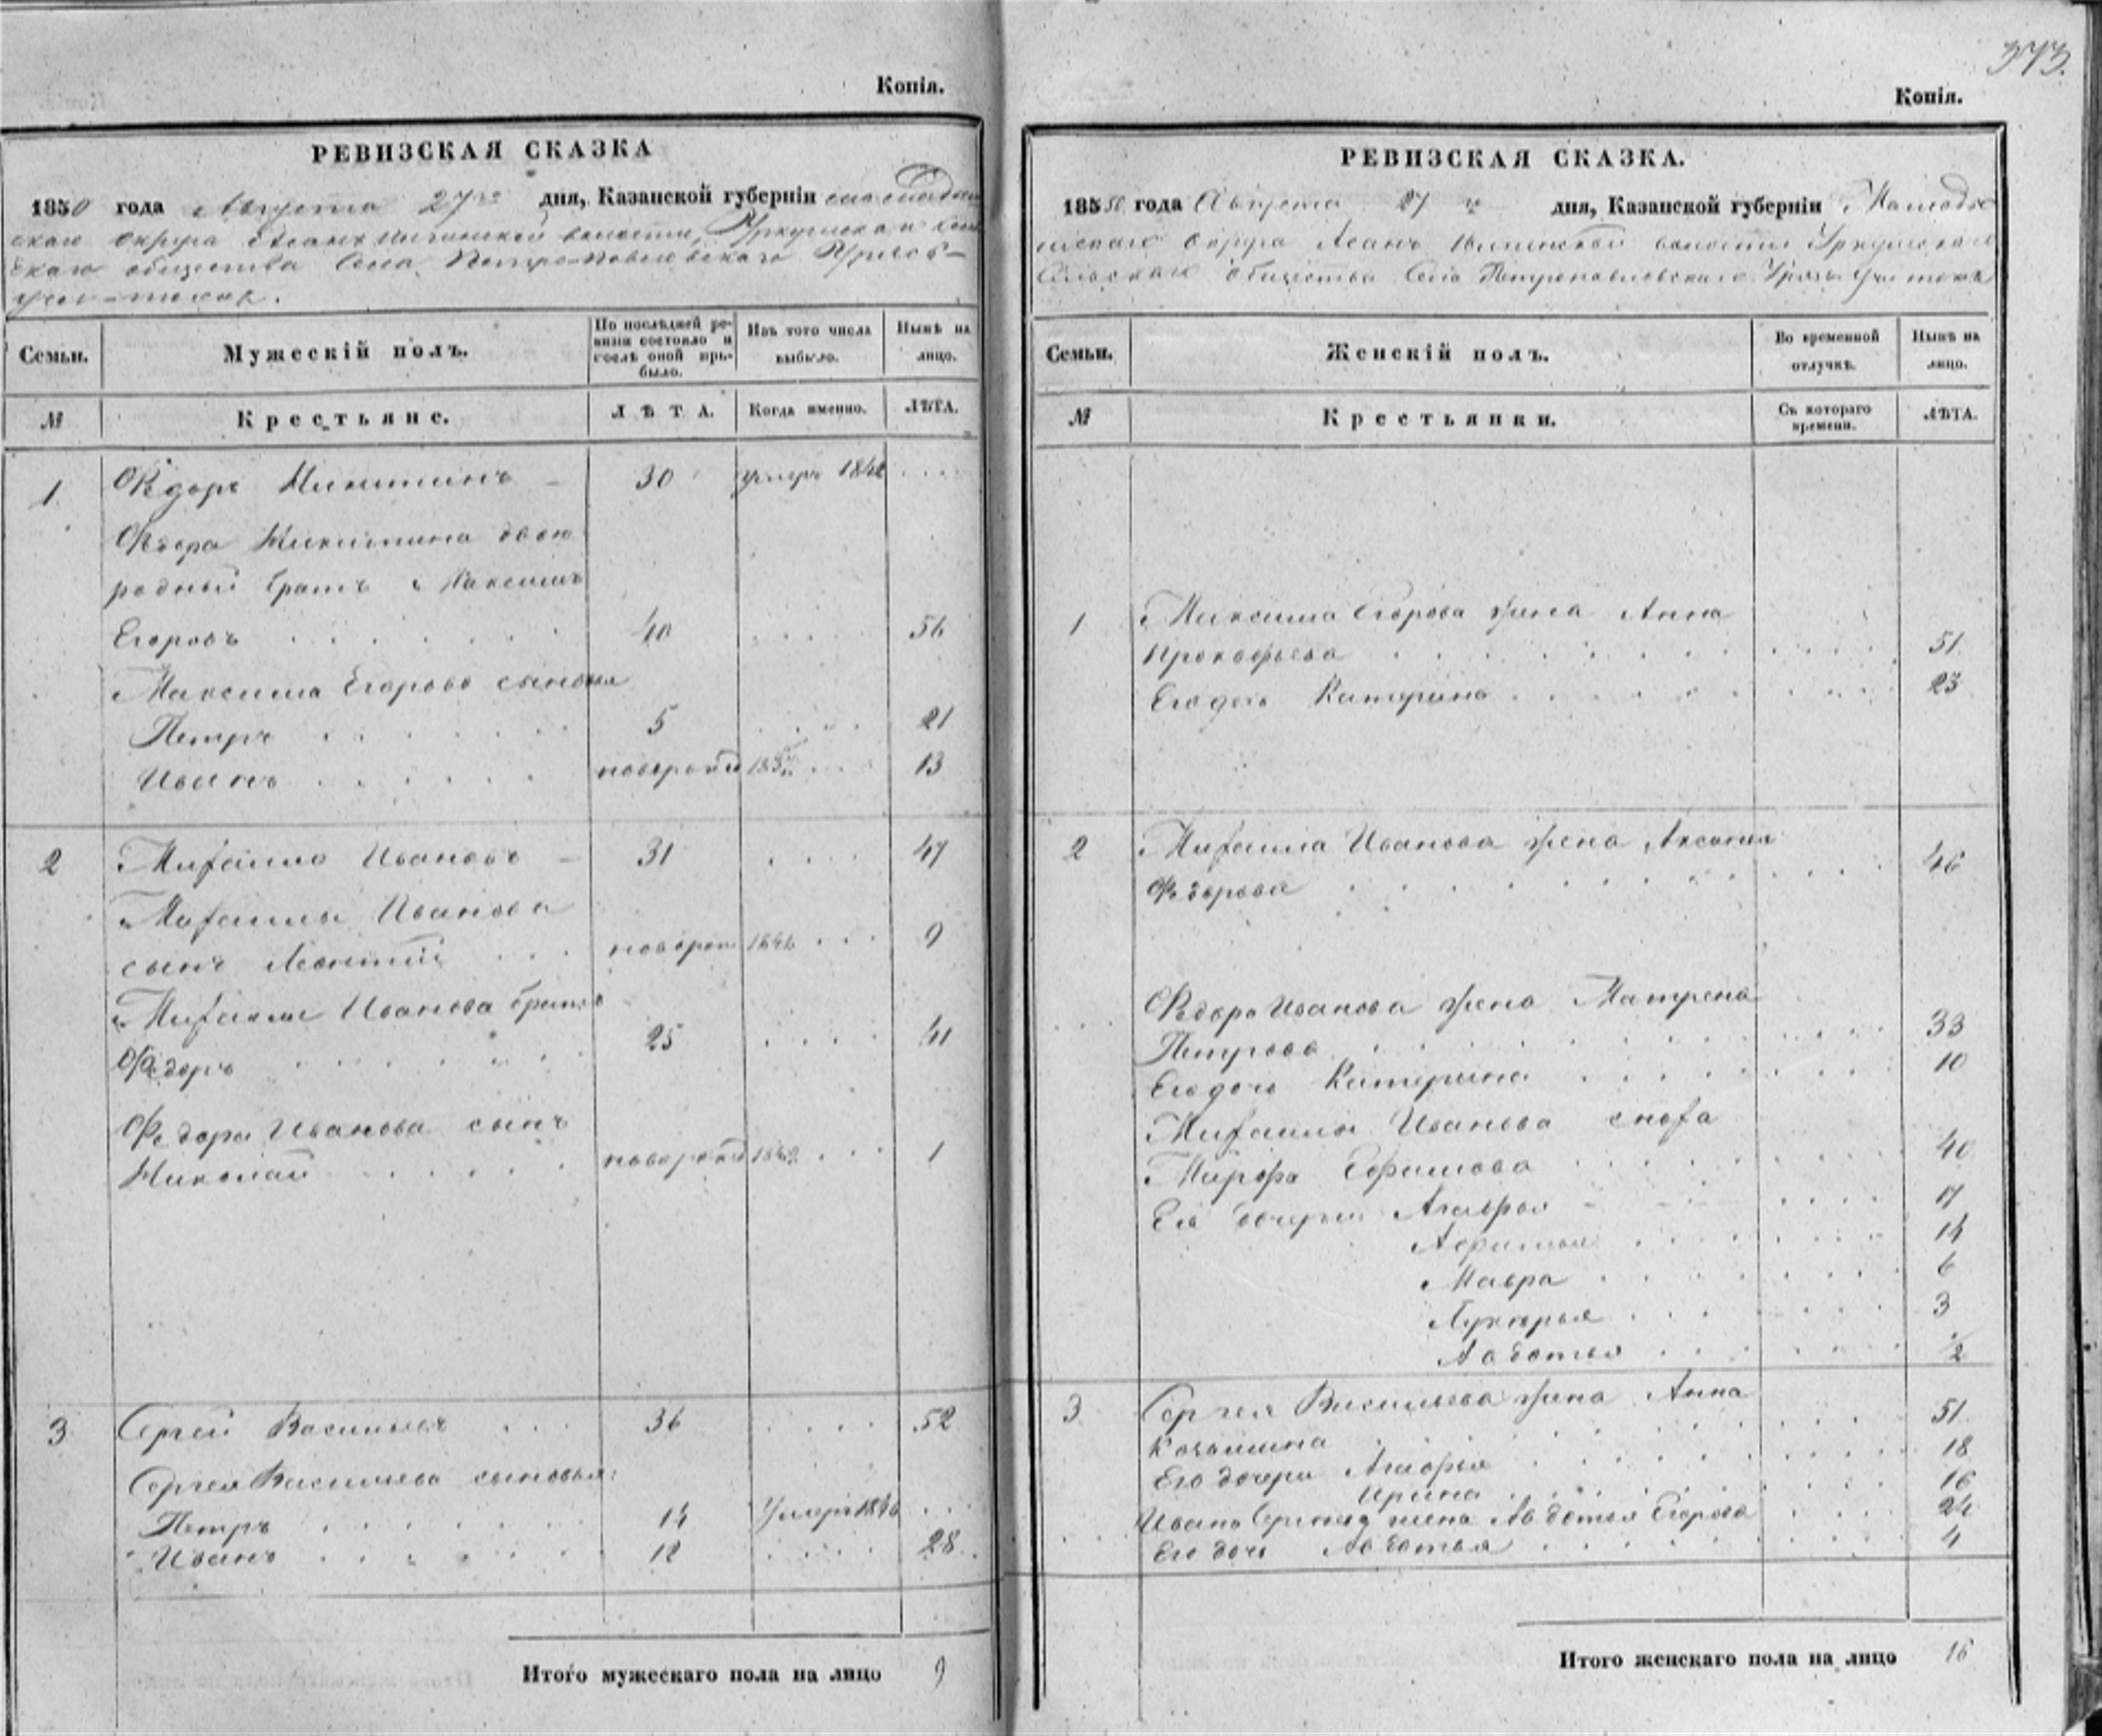 Копія.
РЕВИЗСКАЯ СКАЗКА
1850 года Августа 27го дня, Казанской губерніи
скаго округа волости,
скаго общества Села Петро-Павловскаго
Семьи.
Мужескій полъ.
По послѣдней ре-
визіи состояло и
послѣ оной при-
было.
Изъ того числа
выбыло.
Нынѣ на
лицо.
№
Крестьяне.
ЛѢТА.
Когда именно.
ЛѢТА.
1 Ѳедоръ Никитинъ 30 умеръ
Ѳедора Никитина двою
родный братъ Максимъ
Егоровъ 40 56
Максима Егорова сыновья
Петръ 5 21
Иванъ новорожд 13
2 Михаило Ивановъ 31 47
Михаилы Иванова
сынъ Леонтий новорож 9
Михаилы Иванова братъ
Ѳедоръ 25 41
Ѳедора Иванова сынъ
Николай новорожд 1849 1
3 Сергей Васильевъ 36 52
Сергея Васильева сыновья:
Петръ 14 Умеръ
Иванъ 12 28
Итого мужескаго пола на лицо 9
373.
Копія.
РЕВИЗСКАЯ СКАЗКА.
1850 года Августа 27 дня, Казанской губерніи Мамадыж
скаго Округа волости
Сельскаго Общества Села Петропавловскаго
Семьи.
Женскій полъ.
Во временной
отлучкѣ.
Нынѣ на
лицо.
№
Крестьянки.
Съ котораго
времени.
ЛѢТА.
1 Максима Егорова жена Анна
Прокофьева 51
Его дочь Катерина 23
2 Михаила Иванова жена Аксинья
Ѳедорова 46
Ѳедора Иванова жена Матрена
Петрова 33
Его дочь Катерина 10
Михаилы Иванова сноха
Марфа Ефимова 40
Ея дочери Агафья 17
14
Мавра 6
Лукерья 3
Авдотья 1/2
3 Сергея Васильева жена Анна
Козьмина 51
Его дочери Агафья 18
Ирина 16
Ивана Сергеева жена Авдотья Егорова 24
Его дочь Авдотья 4
Итого женскаго пола на лицо 16